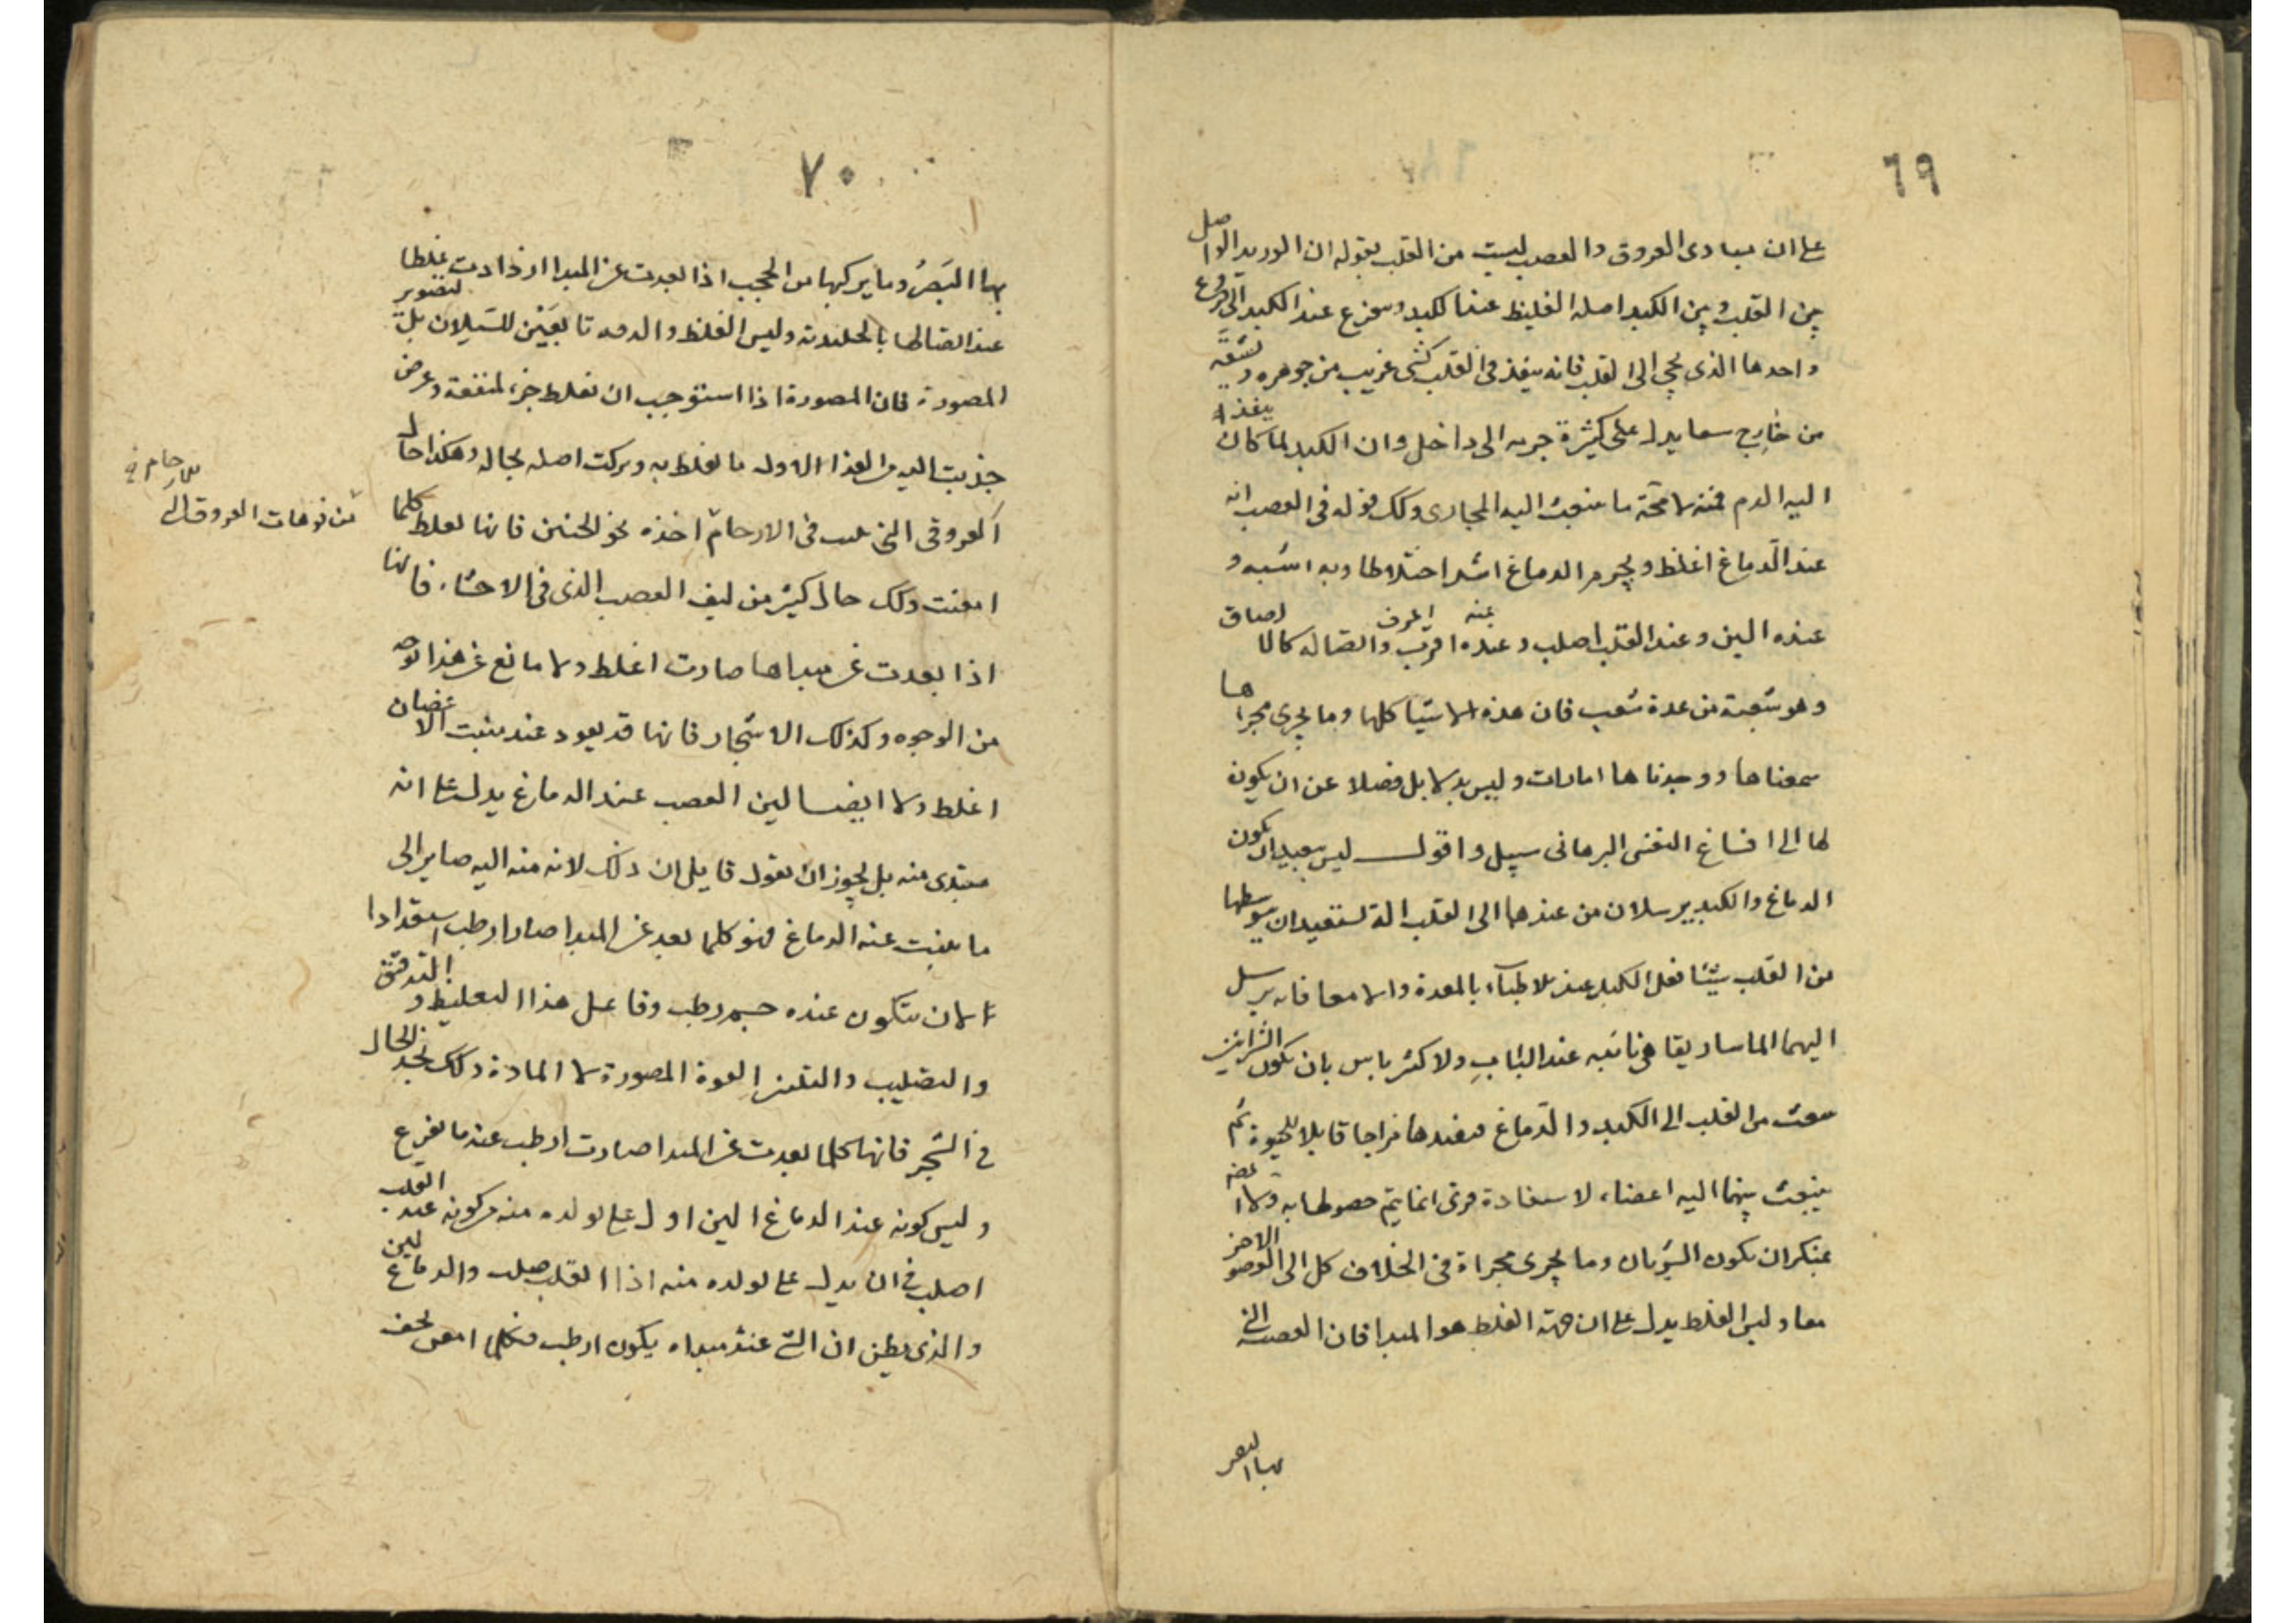 ٦٩
على ان مبادى العروق والعصب ليست من القلب بقوله ان الوريد الواصل
بين القلب وبين الكبد اصله الغليظ عند الكبد ويتفرع عند الكبد الى فروع
واحدها الذى يجى الى القلب فانه ينفذ فى القلب كشى غريب من جوهره وتشقه
من خارج سما يدل على كثرة جريه الى داخل وان الكبد لما كان ينفذ
اليه الدم فمنه لا محة ما ينبعث اليه المجارى وكك قوله فى العصب انه
عند الدماغ اغلظ وبجرم الدماغ اشد اختلاطا وبه اشبه و
عنده الين وعند القلب اصلب وعنده اقرب واتصاله كالالصاق
وهو شعبة من عدة شعب فان هذه الاشيا كلها وما يجرى مجراها
سمعناها ووجدناها امارات وليس بدلايل فضلا عن ان يكون
لها الى اقناع النفس البرهانى سبيل واقول ليس ببعيد ان يكون
الدماغ والكبد يرسلان من عندهما الى القلب الة تستفيدان بتوسطها
من القلب شيئا فعل الكبد عند الاطباء بالمعدة والامعا فانه يرسل
اليهما الماساريقا هى نابته عند الباب ولا كثر باس بان يكون الشرائين
ينبعث من القلب الى الكبد والدماغ فيفيدها مزاجا قابلا للحيوة ثم
ينبعث بينهما اليه اعضاء لاستفادة قوى انما يتم حصولها به ولا
بمنكر ان يكون السؤبان وما يجرى مجراه فى الخلاف كل الى الاخر
معا وليس الغلظ يدل على ان جهة الغلظ هو المبدا فان العصبة التى
بها البصر
٧٠
بها البَصرُ وما يركبها من الحجب اذا بعدت عن المبدا ازدادت غلظا
عند اتصالها بالجليدية وليس الغلظ والدقه تابعَيْن للسيلان بل لتصوير
المصورة فان المصورة اذا استوجب ان تغلظ جزء لمنفعة وعرض
جذبت اليه من الغذا الاول ما تغلظ به وتركت اصله بحاله وهكذا حال
العروق التى فى الارحام اخذه نحو الجنين فانها تغلظ كلما
من فوهات العروق التى للارحام فى
امعنت وكك حال كثير من ليف العصب الذى فى الاحشاء فانها
اذا بعدت عن مبداها صارت اغلظ ولا مانع عن هذا بوجه
من الوجوه وكذلك الاشجار فانها قد يعود عند منبت الاغصان
اغلظ ولا ايضا لين العصب عند الدماغ يدل على انه
مبتدى منه بل يجوز ان يقول قايل ان ذلك لانه منه اليه صاير الى
ما ينبت عنه الدماغ فهو كلما بعد عن المبدا صار ارطب استعدادا
لان يتكون عنده جسم رطب وفاعل هذا التغليظ والتدقيق
والتصليب والتليين القوة المصورة لا المادة وكك نجد الحال
فى الشجر فانها كلما بعدت عن المبدا صارت ارطب عند ما تفرع
وليس كونه عند الدماغ الين اول على تولده منه من كونه عند القلب
اصلب فى ان يدل على تولده منه اذا القلب صلب والدماغ لين
والذى يظن ان الشى عند مبداه يكون ارطب فكلما امعن يجف